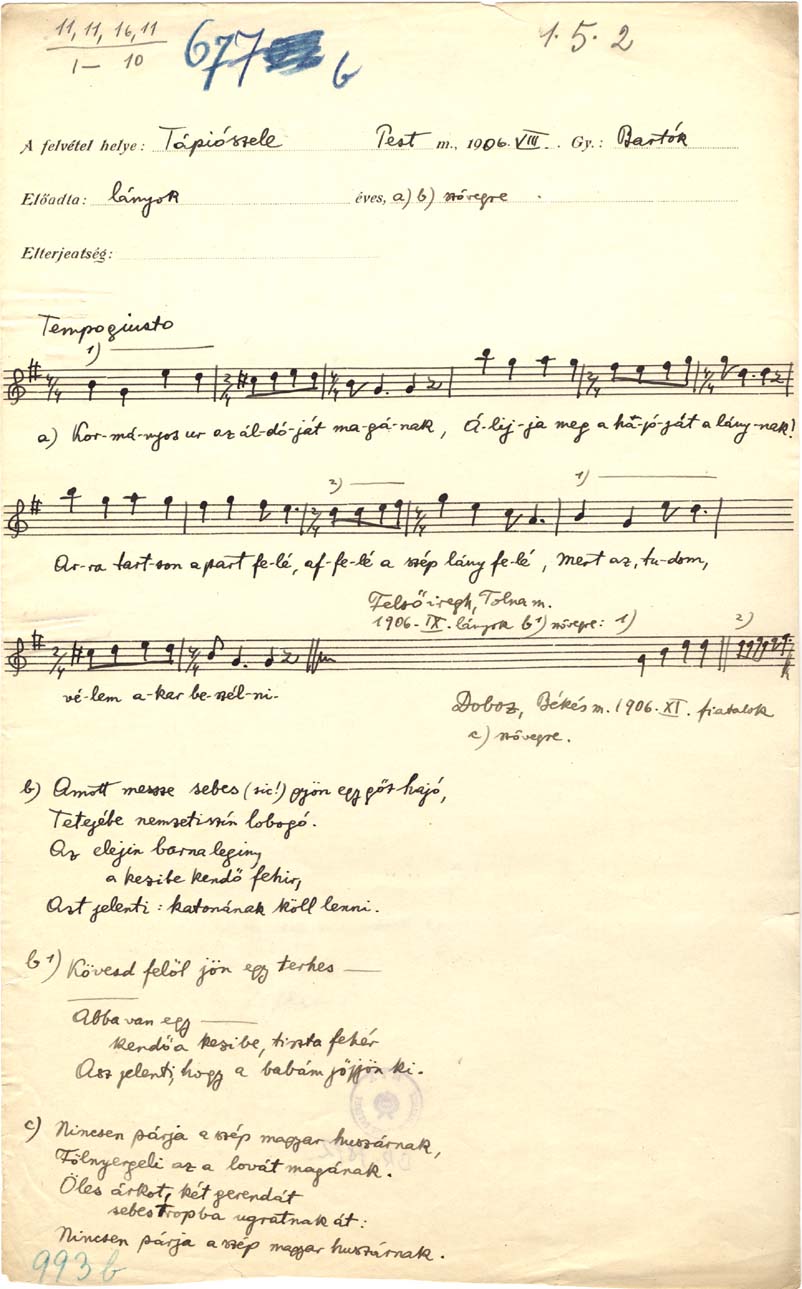 11, 11, 16, 11
1– 10
677 b
1. 5. 2
A felvétel helye: Tápiószele Pest m., 1906. VIII. Gy.: Bartók
Előadta: lányok éves, a) b) szövegre
Elterjeatség:
Tempo giusto
1)
a) Kor-má-nyos ur az ál-dó-ját ma-gá-nak, Á-lij-ja meg a ha-jó-ját a lány-nak!
2) 1)
Ar-ra tart-son a part fe-lé, af-fe-lé a szép lány fe-lé, mert az, tu-dom,
Felsőiregh, Tolna m.
1906. IX. lányok b1) szövegre: 1) 2)
vé-lem a-kar be-szél-ni.
Doboz, Békés m. 1906. XI. fiatalok
c) szövegre.
b) Amott messze sebes (sic!) gyön egy gőz hajó,
Tetejébe nemzetiszín lobogó.
Az elejin barna leginy
a kezibe kendő fehir,
Azt jelenti: katonának köll lenni.
b1) Kövesd felöl jön egy terhes —
Abba van egy —
kendő a kezibe, tiszta fehér
Asz jelenti, hogy a babám jöjjön ki.
c) Nincsen párja a szép magyar huszárnak,
Fölnyergeli az a lovát magának.
Öles árkot, két gerendát
sebes tropba ugratnak át:
Nincsen párja a szép magyar huszárnak.
993 b